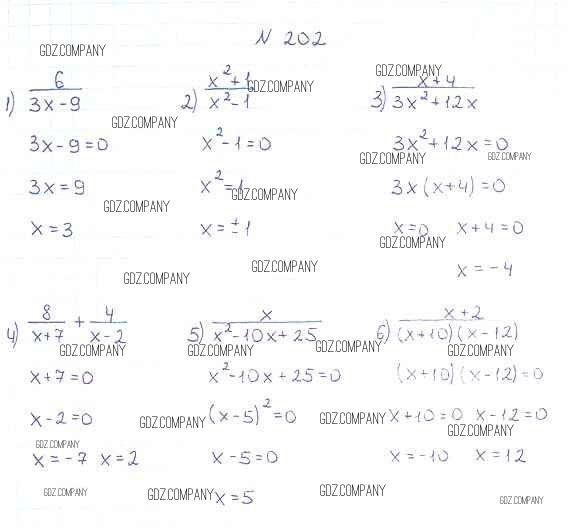 N 202
GDZ.COMPANY
1) 6/(3x-9) 2) (x²+1)/(x²-1) 3) (x+4)/(3x²+12x)
GDZ.COMPANY GDZ.COMPANY
GDZ.COMPANY
3x-9=0 x²-1=0 3x²+12x=0
GDZ.COMPANY GDZ.COMPANY
3x=9 x²=1 3x(x+4)=0
GDZ.COMPANY GDZ.COMPANY
x=3 x=±1 x=0 x+4=0
GDZ.COMPANY
x=-4
GDZ.COMPANY GDZ.COMPANY
4) 8/(x+7) + 4/(x-2) 5) x/(x²-10x+25) 6) (x+2)/((x+10)(x-12))
GDZ.COMPANY GDZ.COMPANY GDZ.COMPANY GDZ.COMPANY
x+7=0 x²-10x+25=0 (x+10)(x-12)=0
x-2=0 (x-5)²=0 x+10=0 x-12=0
GDZ.COMPANY GDZ.COMPANY GDZ.COMPANY
GDZ.COMPANY
x=-7 x=2 x-5=0 x=-10 x=12
GDZ.COMPANY GDZ.COMPANY x=5 GDZ.COMPANY GDZ.COMPANY